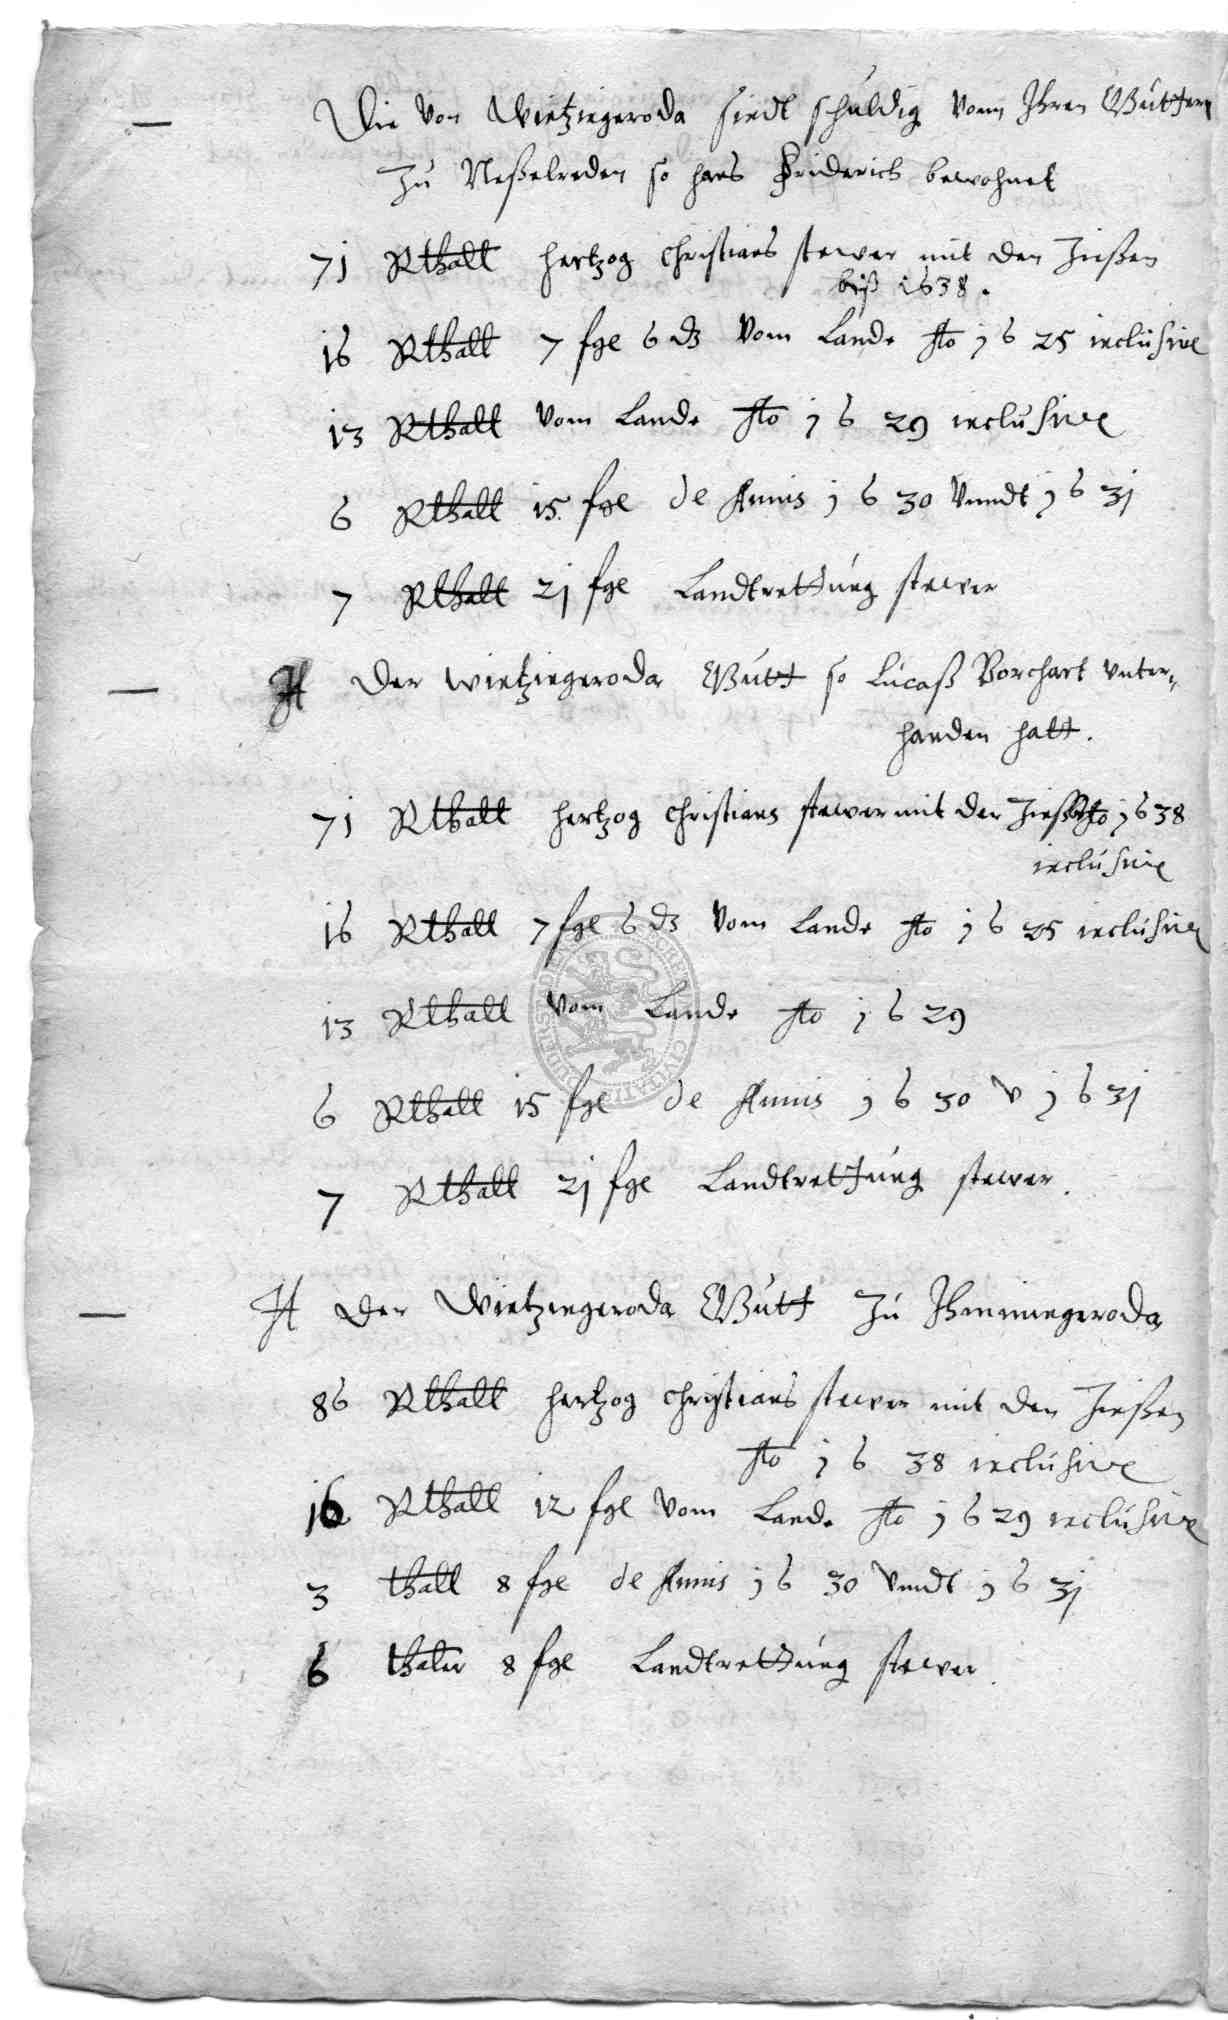 Die von Wintzingeroda sindt schuldig vonn Ihren Güttern
zu Neßelreden so hans Friderich bewohnet
71 Rthall hertzog Christians stewer mit den Zinßen
biß 1638.
16 Rthall 7 fgl 6 d vom Lande Ao 1625 inclusive
13 Rthall vom Lande Ao 1629 inclusive
6 Rthall 15 fgl de Annis 1630 vnndt 1631
7 Rthall 21 fgl Landtrettung stewer
It Der Wintzingeroda Gutt so Lucaß Borchart vnter-
handen hatt.
71 Rthall hertzog Christians stewer mit der Zinß Ao 1638
inclusive
16 Rthall 7 fgl 6 d vom Lande Ao 1625 inclusive
13 Rthall vom Lande Ao 1629
6 Rthall 15 fgl de Annis 1630 v 1631
7 Rthall 21 fgl Landtrettung stewer.
It Der Wintzingeroda Gutt zu Immingeroda
86 Rthall hertzog Christians stewer mit den Zinßen
Ao 1638 inclusive
16 Rthall 12 fgl vom Lande Ao 1629 inclusive
3 thall 8 fgl de Annis 1630 vndt 1631
6 thaler 8 fgl Landtrettung stewer.